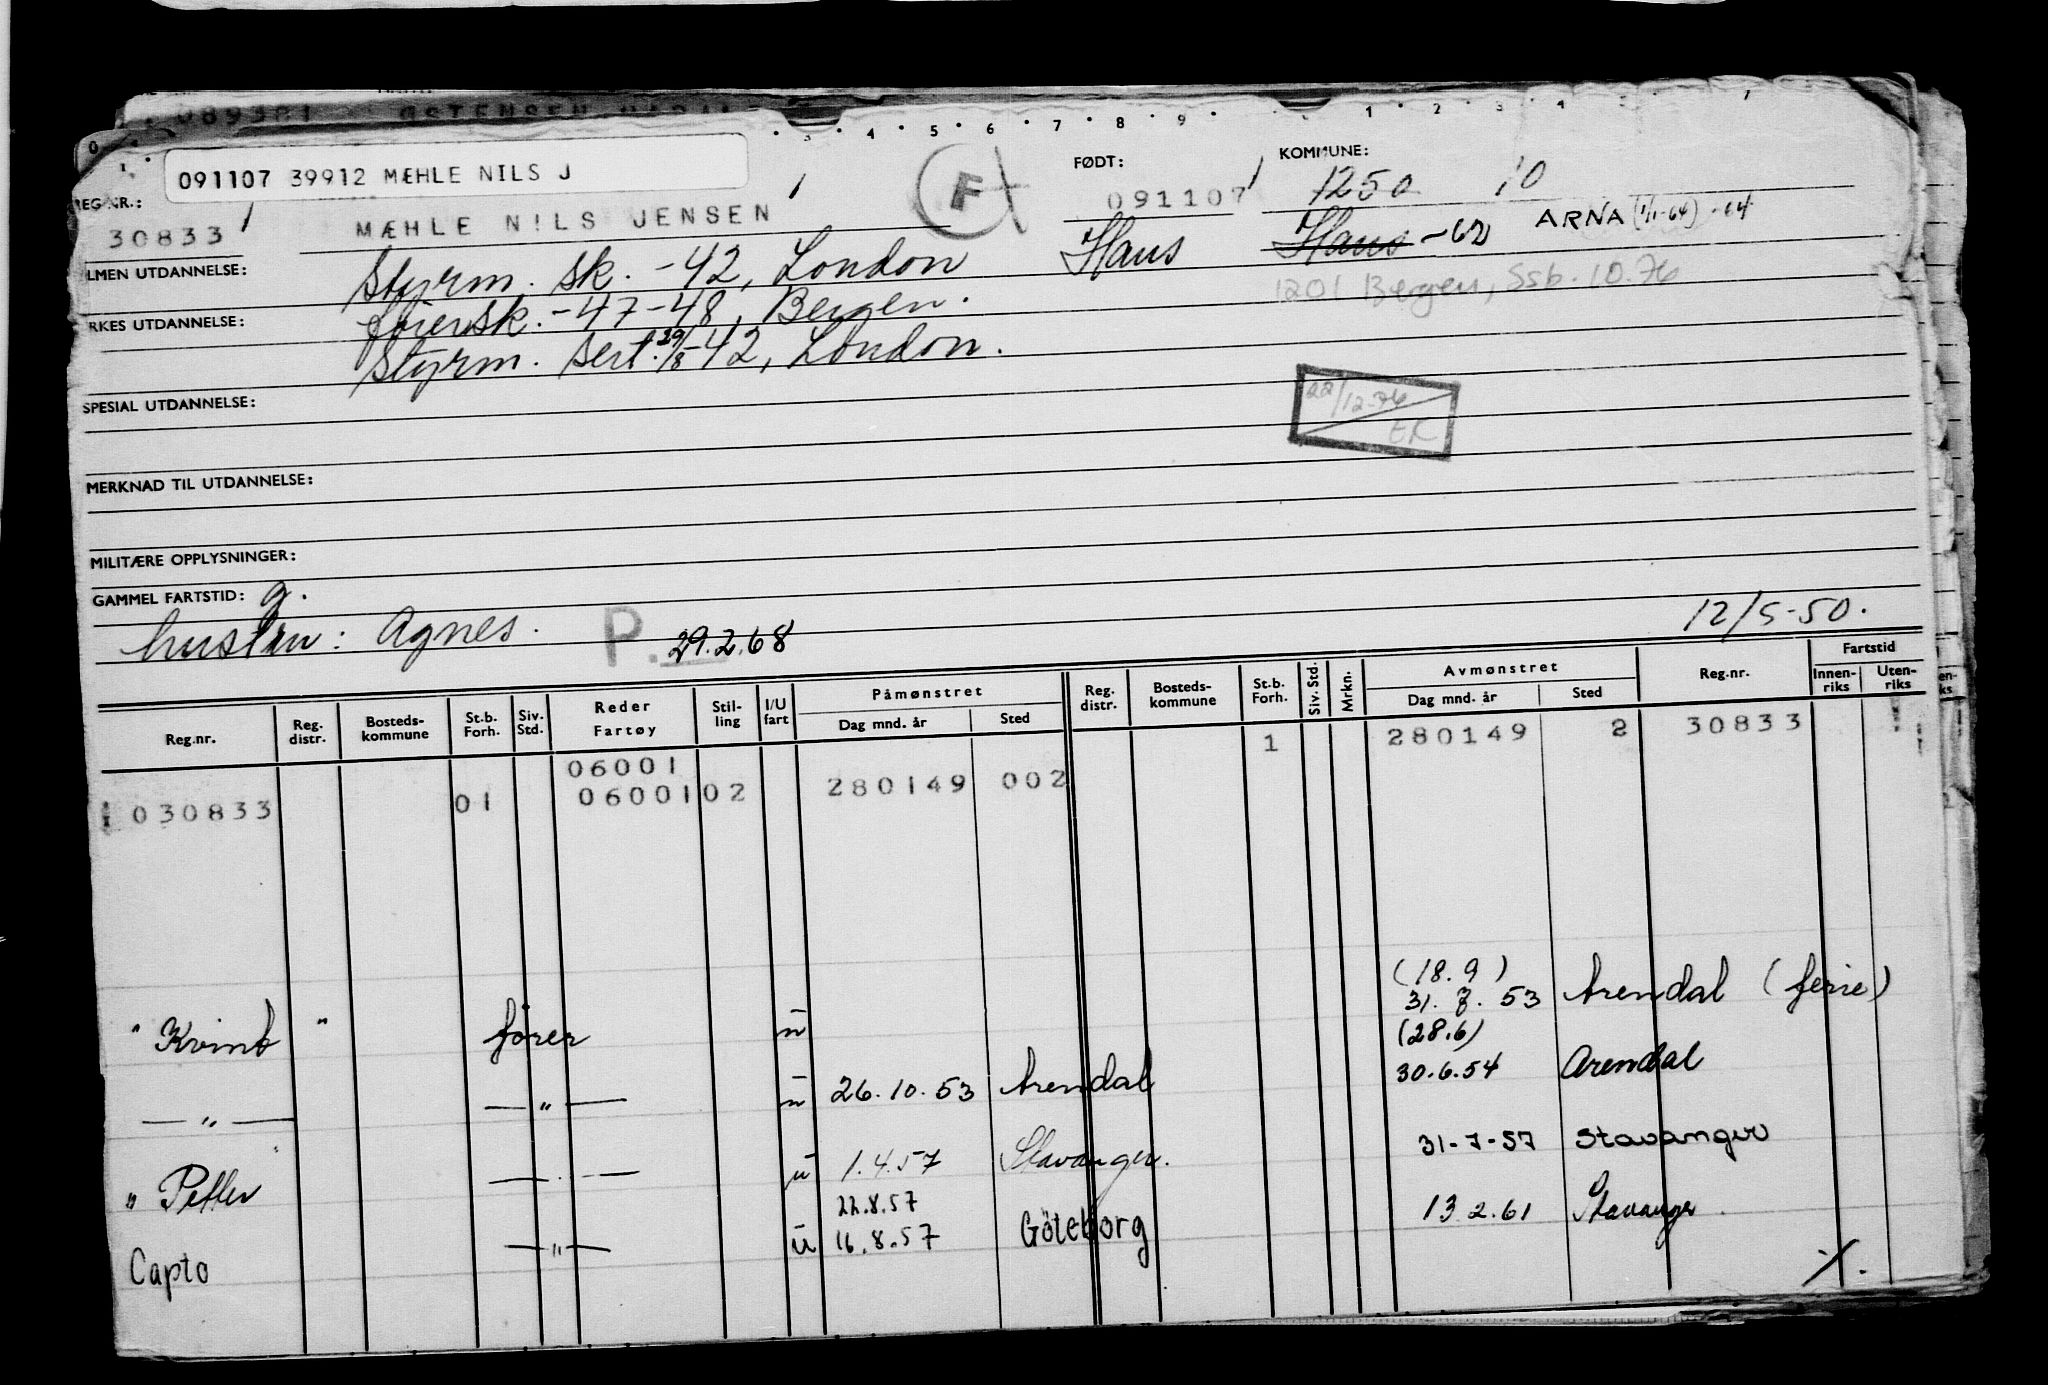 091107 39912 MÆHLE NILS J
FØDT:
KOMMUNE:
REG NR.:
30833
MÆHLE NILS JENSEN
F
091107
1250
10
Haus
Haus -62
ARNA (1/1-64) -64
1201 Bergen, Ssb. 10.76
LMEN UTDANNELSE:
Styrm. sk. -42, London
RKES UTDANNELSE:
førersk. -47-48, Bergen.
Styrm. sert. 29/8-42, London.
SPESIAL UTDANNELSE:
22/12-76
EK
MERKNAD TIL UTDANNELSE:
MILITÆRE OPPLYSNINGER:
GAMMEL FARTSTID: g.
hustru: Agnes.
P. 29.2.68
12/5-50.
Reg.nr. Reg. distr. Bosteds-kommune St.b. Forh. Siv. Std. Reder Fartøy Stil-ling I/U fart Påmønstret Dag mnd. år Sted Reg. distr. Bosteds-kommune St.b. Forh. Siv. Std. Mrkn. Avmønstret Dag mnd. år Sted Reg.nr. Fartstid Innen-riks Uten-riks
06001
1 280149 2 30833
030833 01 06001 02 280149 002
(18.9)
" Kvint " fører u 31. 7. 53 Arendal (ferie)
(28.6)
— " — — " — u 26.10.53 Arendal 30.6.54 Arendal
" Petter — . — u 1.4.57 Stavanger. 31-7-57 Stavanger
22.8.57
Capto — " — u 16.8.57 Göteborg 13.2.61 Stavanger.